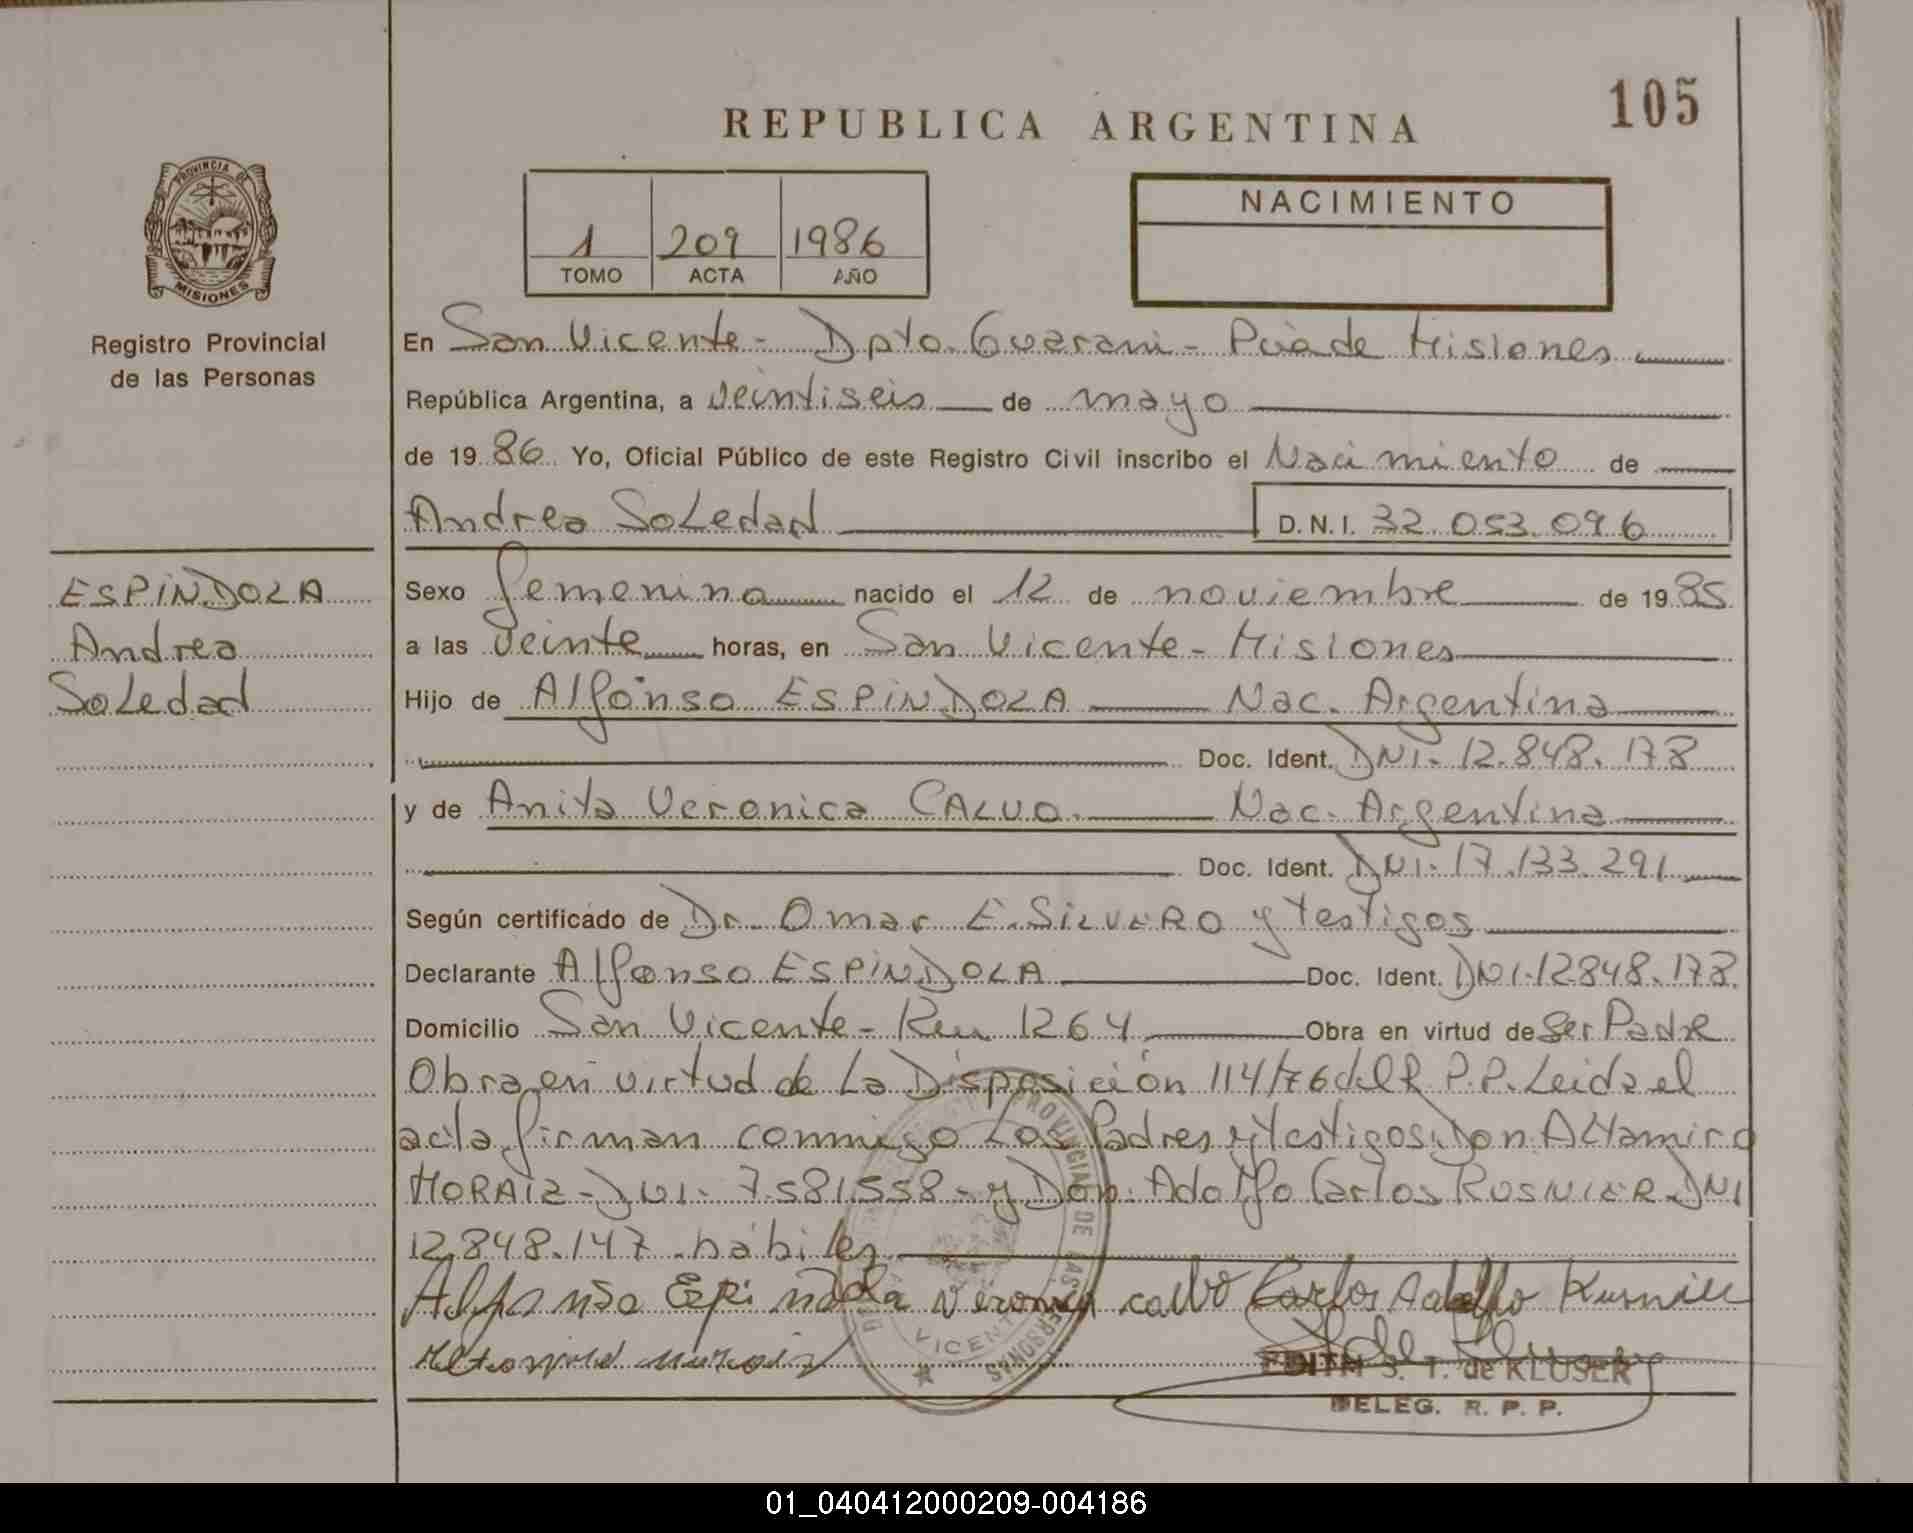 105
REPUBLICA ARGENTINA
PROVINCIA DE
MISIONES
Registro Provincial
de las Personas
1 209 1986
TOMO ACTA AÑO
NACIMIENTO
En San Vicente - Dpto. Guarani - Pcia de Misiones
República Argentina, a veintiseis de mayo
de 1986 Yo, Oficial Público de este Registro Civil inscribo el Nacimiento de
Andrea Soledad D.N.I. 32.053.096
ESPINDOLA
Andrea
Soledad
Sexo femenino nacido el 12 de noviembre de 1985
a las veinte horas, en San Vicente - Misiones
Hijo de Alfonso ESPINDOLA Nac. Argentina
Doc. Ident. DNI. 12.848.178
y de Anita Veronica CALVO. Nac. Argentina
Doc. Ident. DNI. 17.133.291
Según certificado de Dr. Omar E. SILVERO y testigos
Declarante Alfonso ESPINDOLA Doc. Ident. DNI. 12848.178
Domicilio San Vicente - Km 1264 Obra en virtud de ser Padre
Obra en virtud de La Disposición 114/76 del R.P.P. Leida el
acta firman conmigo Los Padres y testigos: Don Altamiro
MORAIZ - DNI. 7.581.558 - y Don. Adolfo Carlos KUSNIER DNI
12.848.147 hábiles
Alfonso Espindola Veronica calvo Carlos Adolfo Kusnier
EDITH S. T. de KLUSER
DELEG. R. P. P.
01_040412000209-004186